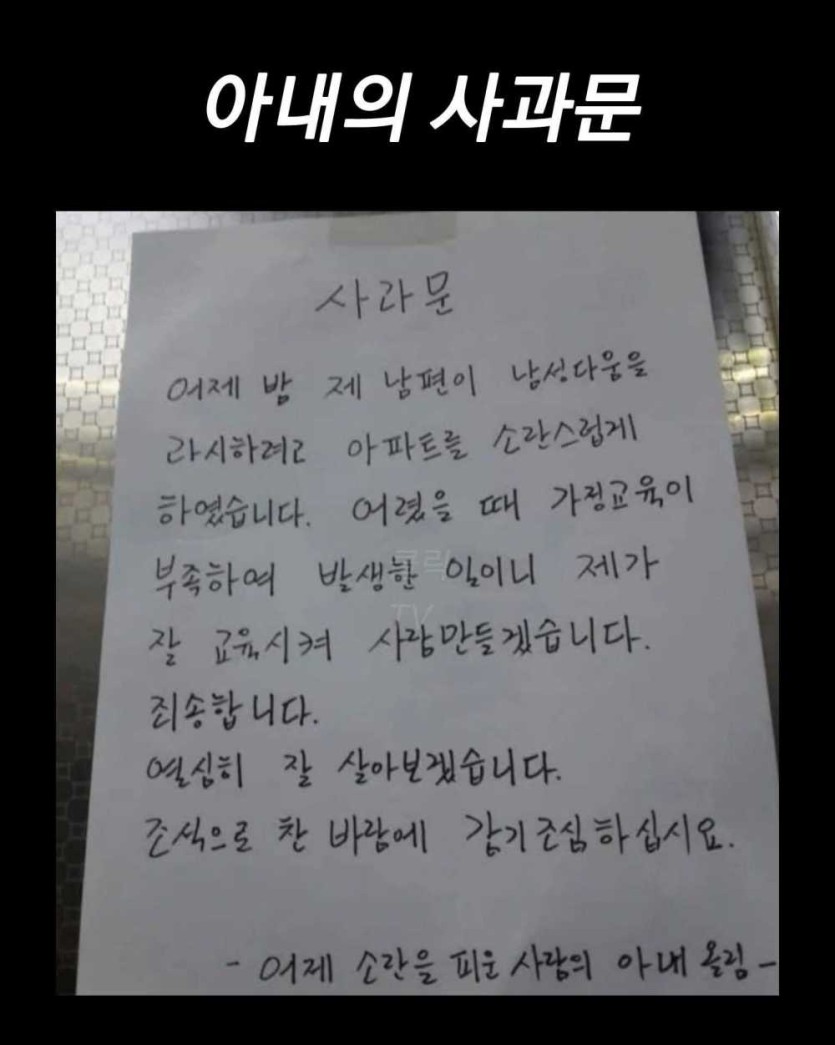 아내의 사과문
사과문
어제 밤 제 남편이 남성다움을
과시하려고 아파트를 소란스럽게
하였습니다. 어렸을 때 가정교육이
부족하여 발생한 일이니 제가
잘 교육시켜 사람만들겠습니다.
죄송합니다.
열심히 잘 살아보겠습니다.
조석으로 찬 바람에 감기조심하십시요.
- 어제 소란을 피운 사람의 아내 올림 -